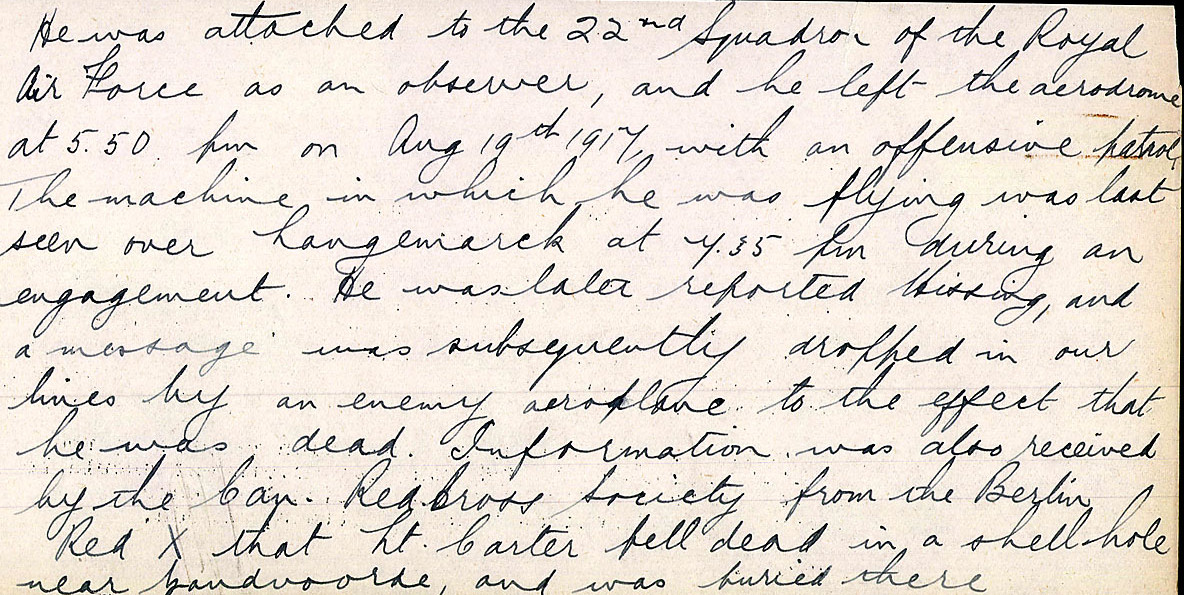 He was attached to the 22nd Squadron of the Royal
Air Force as an observer, and he left the aerodrome
at 5.50 pm on Aug 19th 1917, with an offensive patrol,
The machine in which he was flying was last
seen over Langemarck at 7.35 pm during an
engagement. He was later reported Missing, and
a message was subsequently dropped in our
lines by an enemy aeroplane to the effect that
he was dead. Information was also received
by the Can. Red Cross Society from the Berlin
Red X that Lt. Carter fell dead in a shell-hole
near Zandvoorde, and was buried there